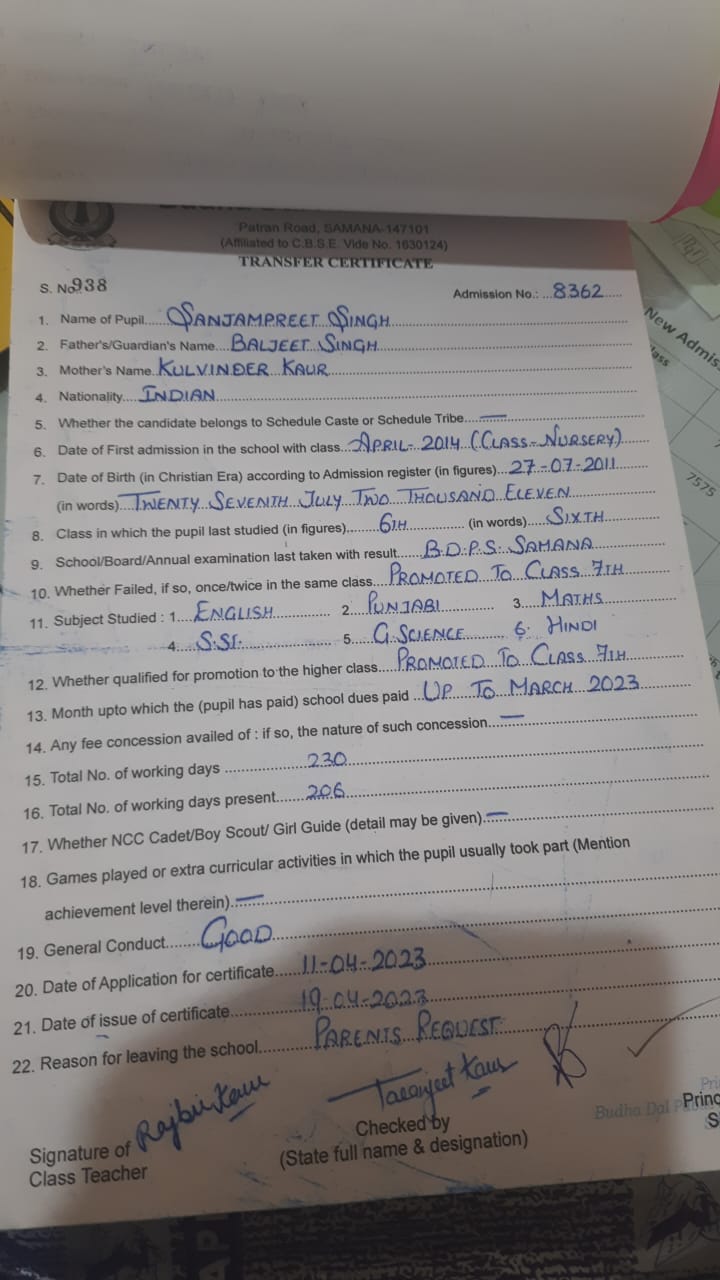 Patran Road, SAMANA-147101
(Affiliated to C.B.S.E. Vide No. 1630124)
TRANSFER CERTIFICATE
S. No. 938 Admission No.: ...8362......
1. Name of Pupil......SANJAMPREET SINGH
2. Father's/Guardian's Name....BALJEET SINGH
3. Mother's Name.KULVINDER KAUR
4. Nationality.....INDIAN
5. Whether the candidate belongs to Schedule Caste or Schedule Tribe.....—
6. Date of First admission in the school with class...APRIL-2014 (CLASS-NURSERY)
7. Date of Birth (in Christian Era) according to Admission register (in figures)...27-07-2011
(in words)..TWENTY SEVENTH JULY TWO THOUSAND ELEVEN
8. Class in which the pupil last studied (in figures)........6TH............ (in words).....SIXTH
9. School/Board/Annual examination last taken with result......B.D.P.S. SAMANA
10. Whether Failed, if so, once/twice in the same class....PROMOTED TO CLASS 7TH
11. Subject Studied : 1....ENGLISH............ 2....PUNJABI............ 3....MATHS
4......S.ST............. 5.....G.SCIENCE......... 6. HINDI
12. Whether qualified for promotion to the higher class....PROMOTED TO CLASS 7TH
13. Month upto which the (pupil has paid) school dues paid ..UP TO MARCH 2023
14. Any fee concession availed of : if so, the nature of such concession...—
15. Total No. of working days ..................230
16. Total No. of working days present.......206
17. Whether NCC Cadet/Boy Scout/ Girl Guide (detail may be given).—
18. Games played or extra curricular activities in which the pupil usually took part (Mention
achievement level therein).—
19. General Conduct.......GOOD
20. Date of Application for certificate.....11-04-2023
21. Date of issue of certificate.............19-04-2023
22. Reason for leaving the school...........PARENTS REQUEST
Rajbir Kaur Taranjeet Kaur
Signature of
Class Teacher
Checked by
(State full name & designation)
Budha Dal
New Admis
lass
7575